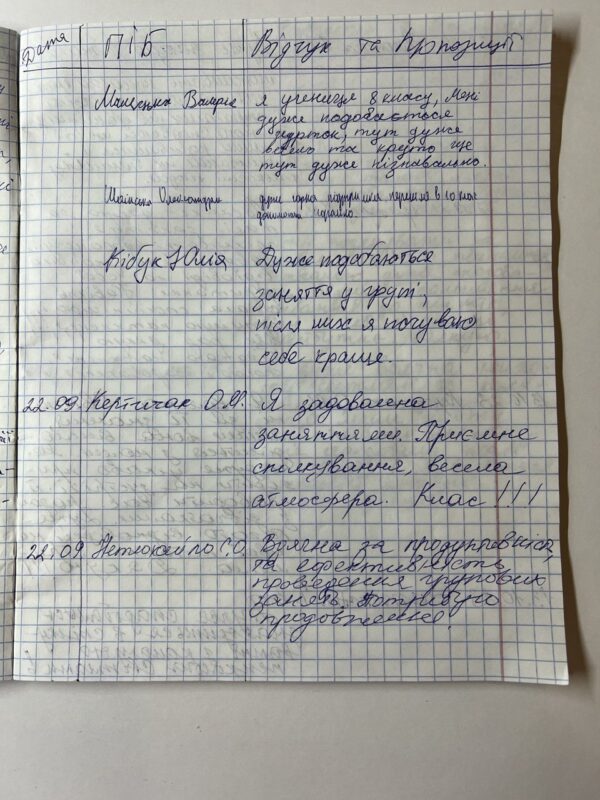 Дата ПІБ. Відчук та Пропозиції
Валерія я учениця 8 класу, мені
дуже подобається
гурток, тут дуже
весело та круто ще
тут дуже пізнавально.
Олександра дуже гарна підтримка
допомогла
Кібук Юлія Дуже подобаються
заняття у групі,
після них я почуваю
себе краще.
22.09. Кертичак О.М. Я задоволена
заняттями. Приємне
спілкування, весела
атмосфера. Клас!!!
22.09 Вдячна за продуктивність
та ефективність
проведення групових
занять. Потребую
продовження.